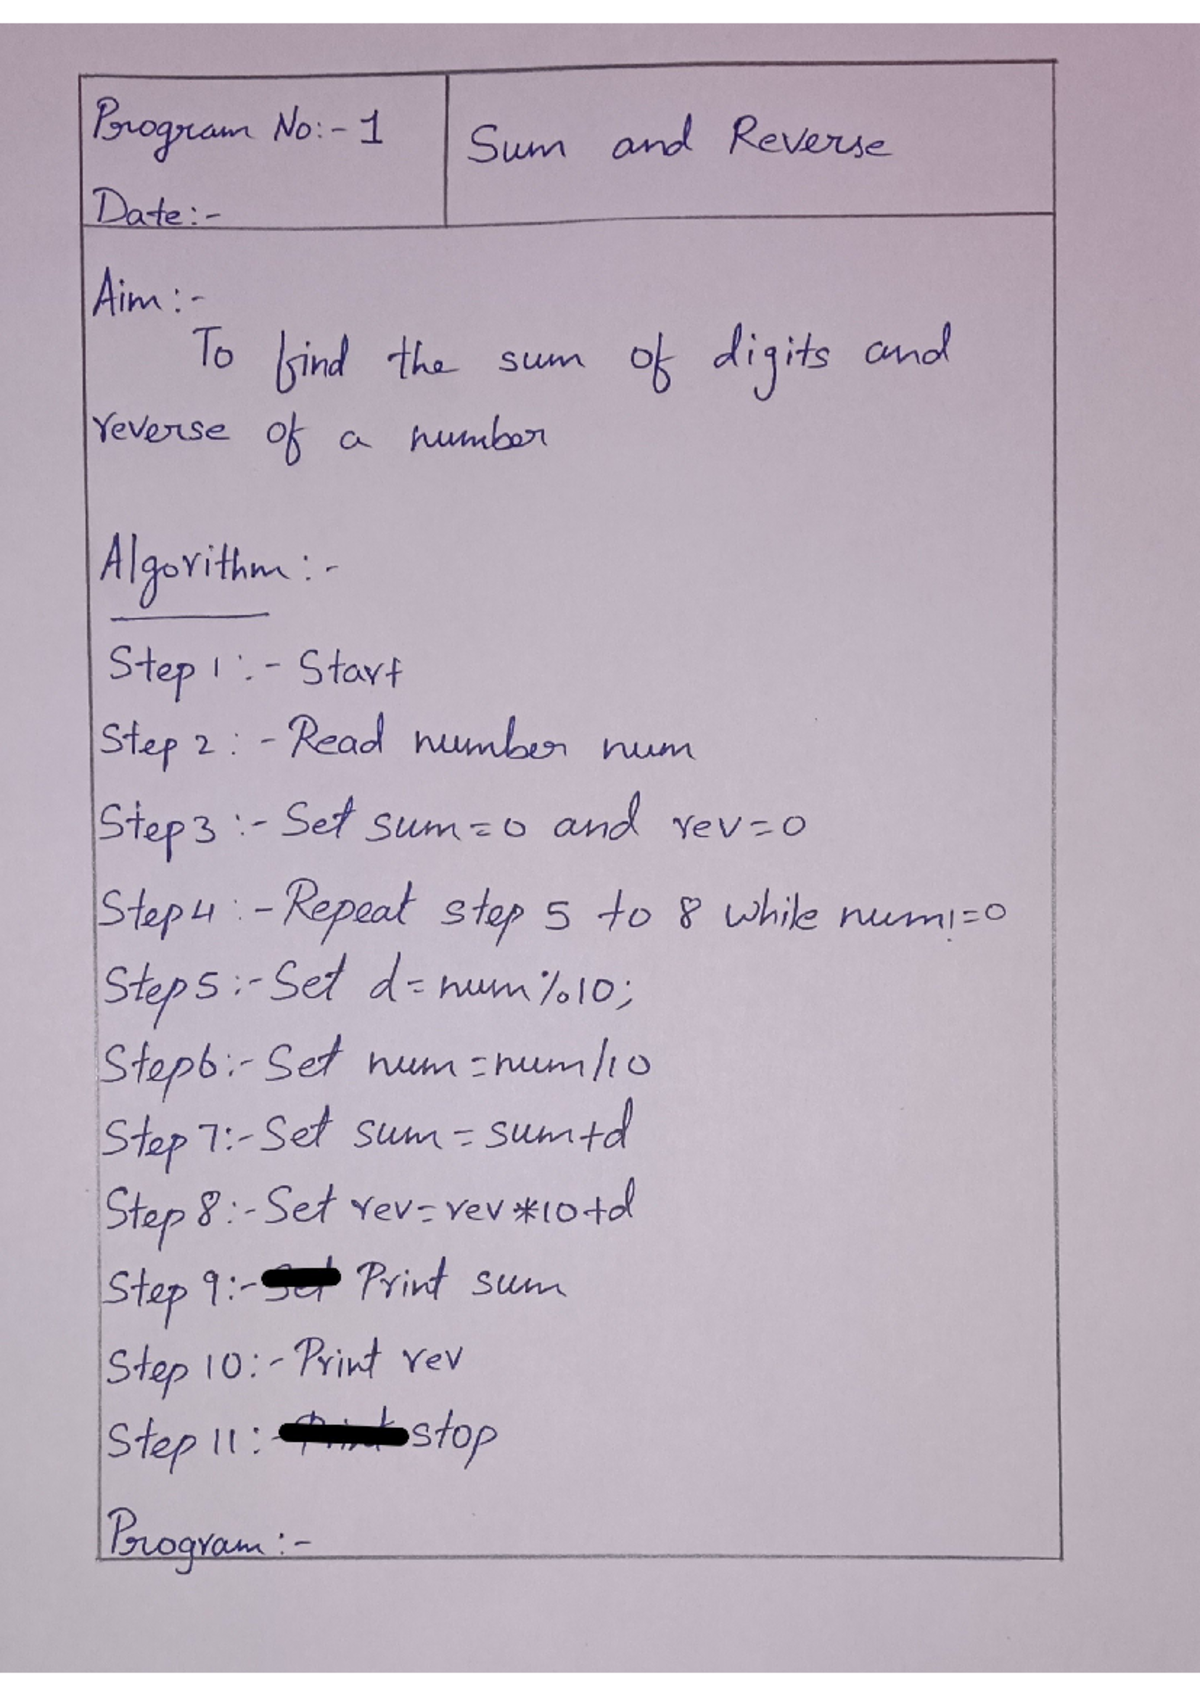 Program No:- 1
Date:-
Sum and Reverse
Aim:-
To find the sum of digits and
reverse of a number
Algorithm:-
Step 1:- Start
Step 2:- Read number num
Step3:- Set sum=0 and rev=0
Step4:- Repeat step 5 to 8 while num!=0
Step5:- Set d=num%10;
Step6:- Set num=num/10
Step 7:- Set sum=sum+d
Step 8:- Set rev=rev*10+d
Step 9:- Print sum
Step 10:- Print rev
Step 11:- stop
Program:-